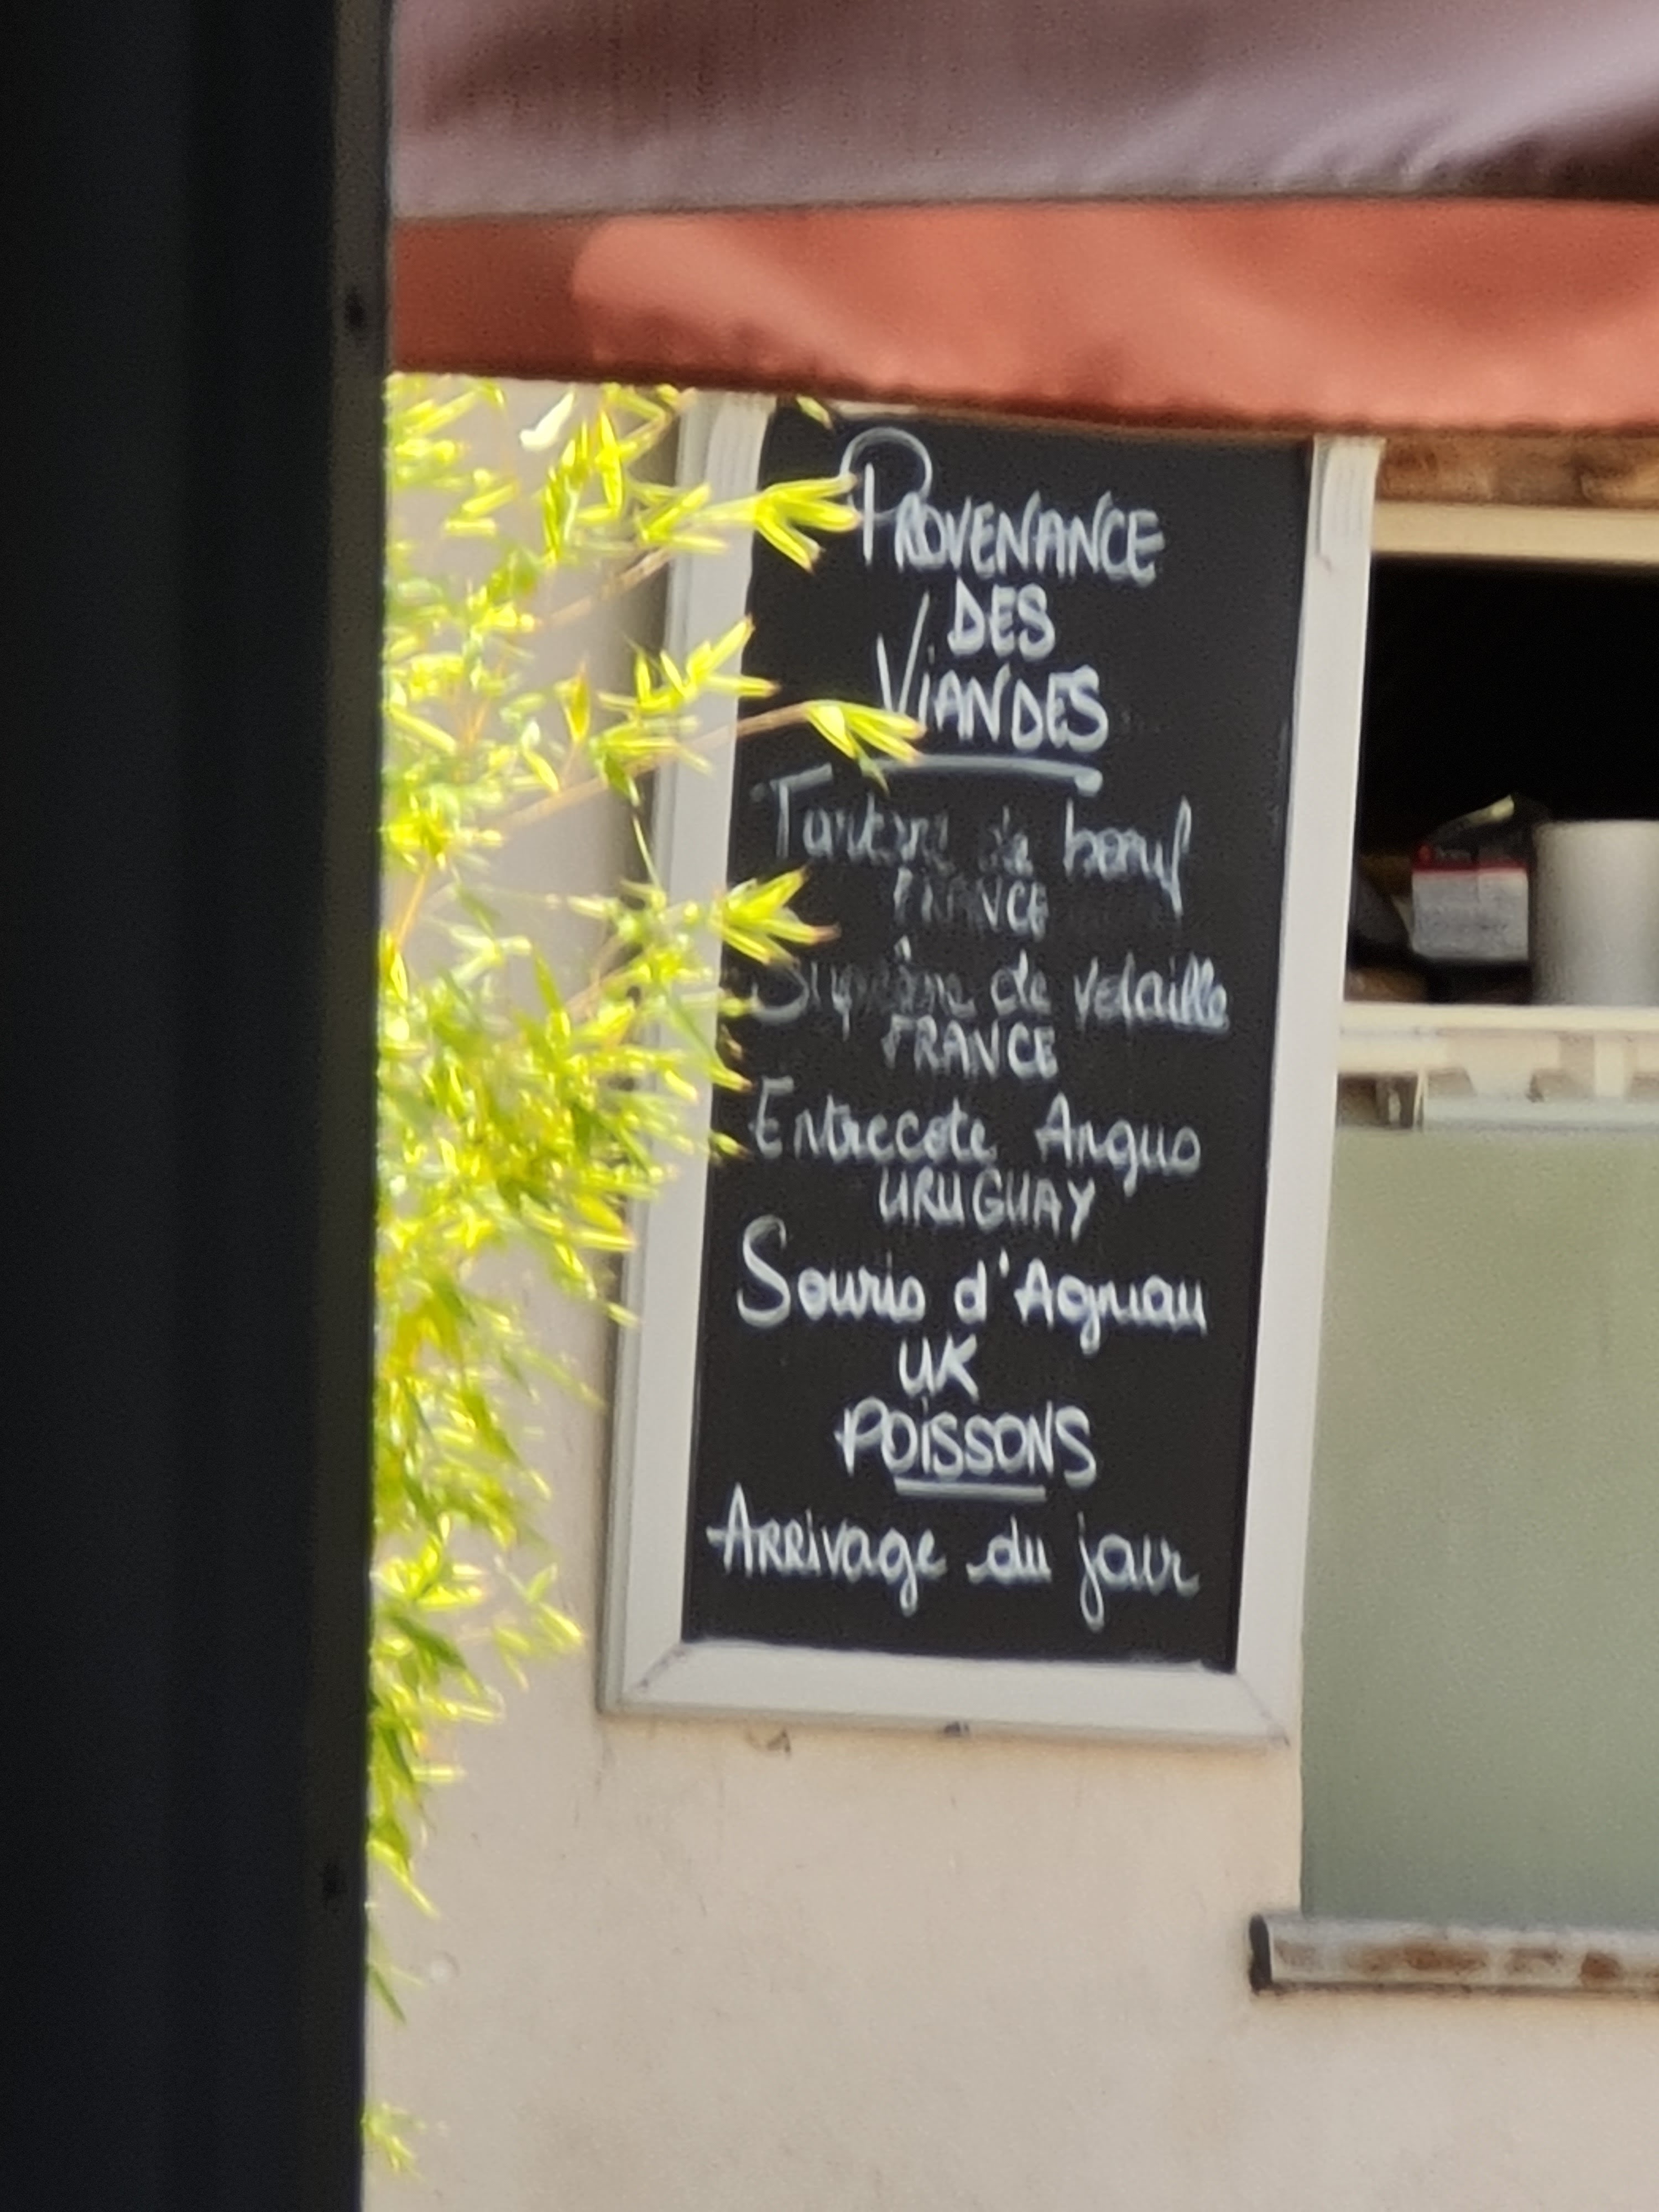 PROVENANCE
DES
VIANDES
Tartare de bœuf
FRANCE
Suprême de volaille
FRANCE
Entrecote Angus
URUGUAY
Souris d'Agneau
UK
POISSONS
Arrivage du jour